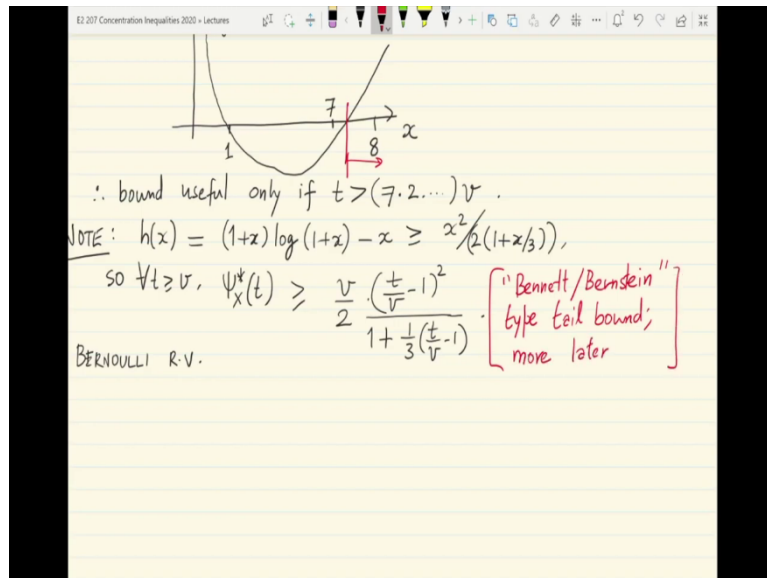 E2 207 Concentration Inequalities 2020 » Lectures
7
1
8
x
∴ bound useful only if t > (7.2...) v .
NOTE : h(x) = (1+x) log (1+x) − x ≥ x²/(2(1+x/3)),
so ∀t ≥ v, ψ*_X(t) ≥ v/2 · (t/v −1)² / (1 + 1/3 (t/v −1)) .
["Bennett/Bernstein"
type tail bound;
more later]
BERNOULLI R.V.